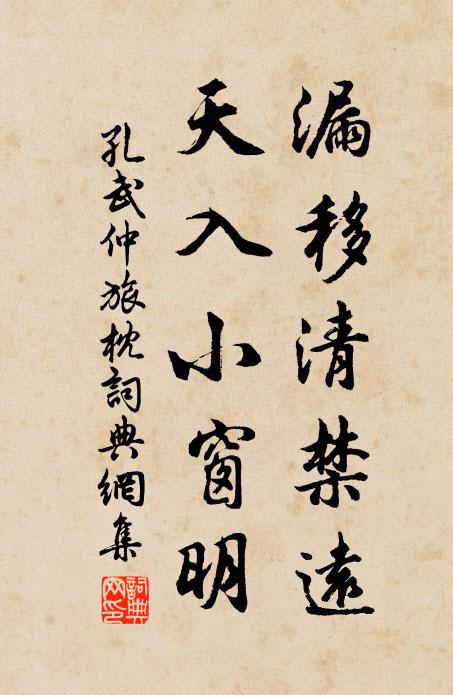 漏移清禁遠
天入小窗明
孔武仲旅枕詞典網集
詞典網印